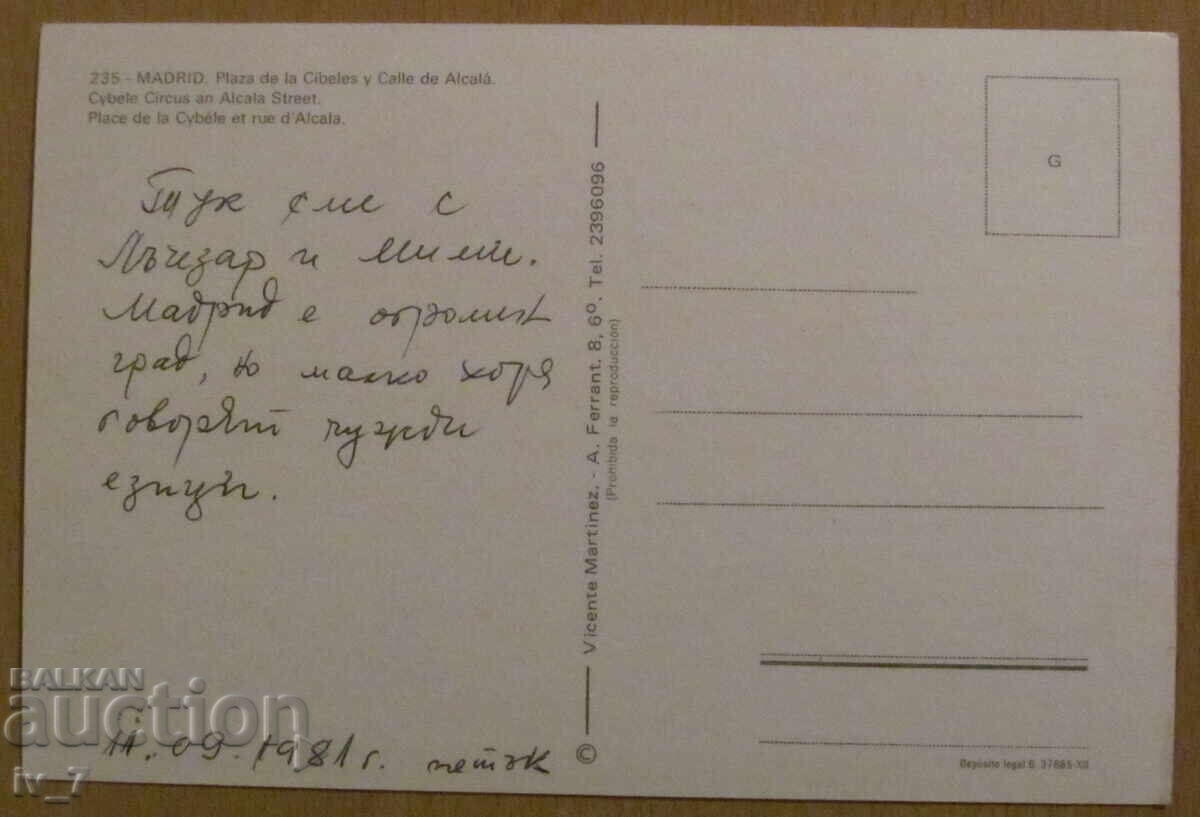 235 - MADRID. Plaza de la Cibeles y Calle de Alcalá.
Cybele Circus an Alcala Street.
Place de la Cybéle et rue d'Alcala.
Тук сме с
Лъчезар и Мими.
Мадрид е огромен
град, но малко хора
говорят чужди
езици.
11.09.1981 г. петък
© Vicente Martinez. - A. Ferrant. 8, 6º. Tel. 2396096
(Prohibida la reproducción)
G
Depósito legal B. 37685-XII
BALKAN
auction
iv_7